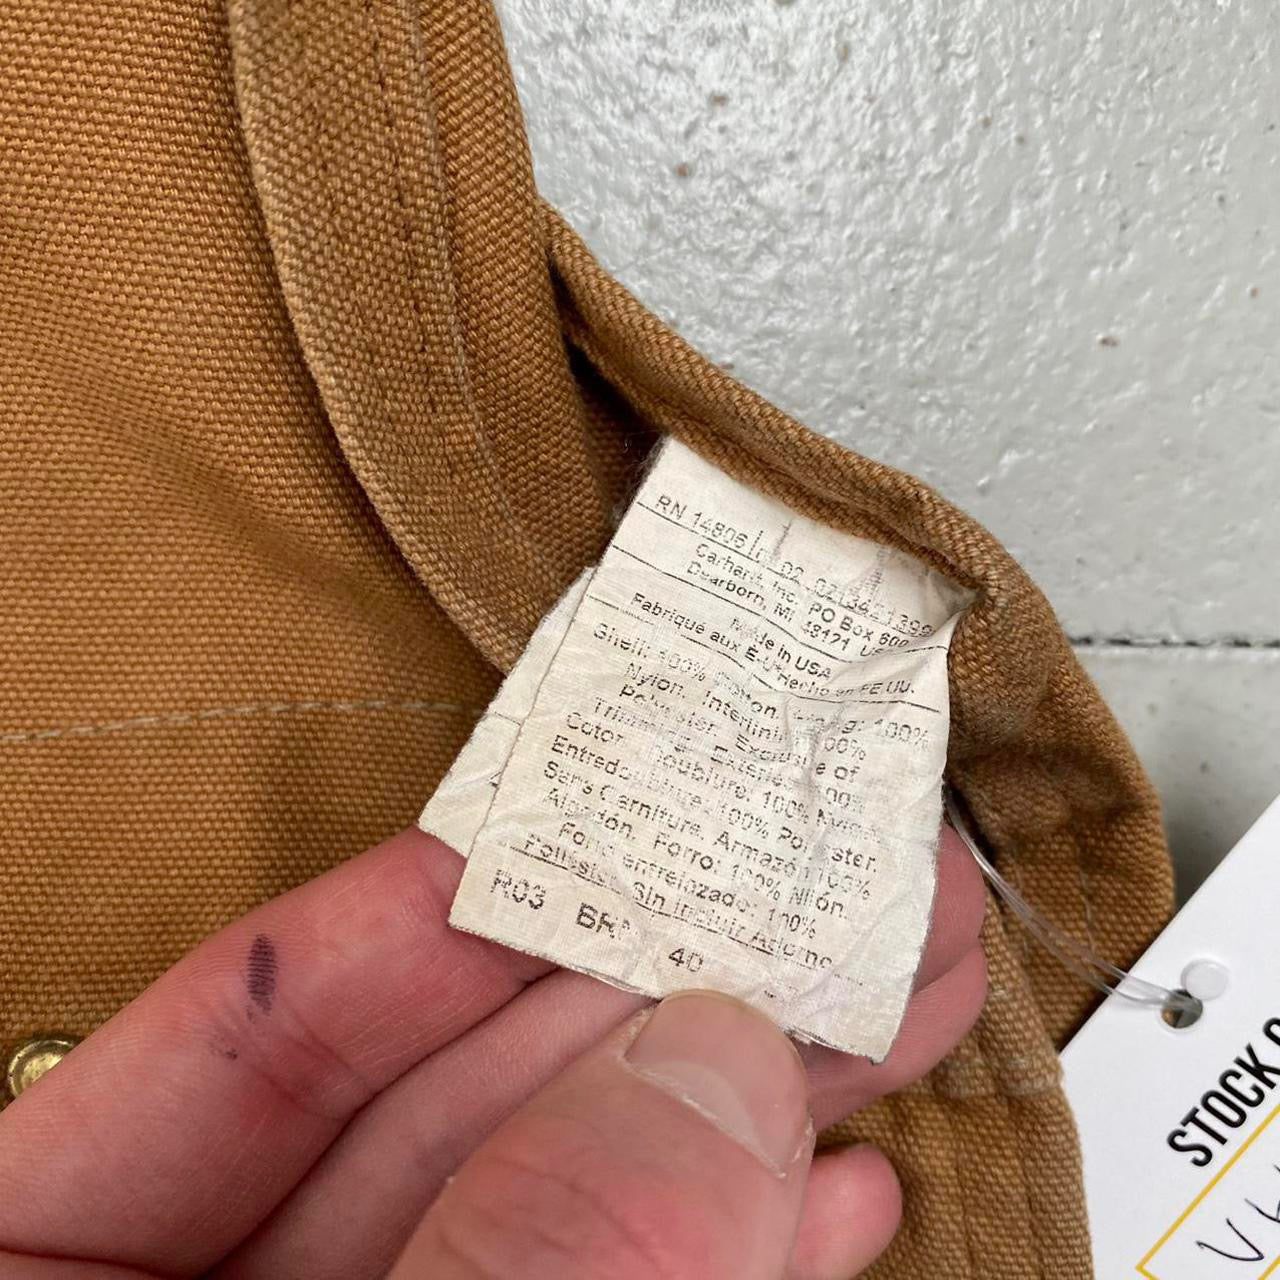 RN 14806
Carhartt, Inc. PO Box 600
Dearborn, MI 48121
Made in USA
Fabriqué aux É-U Hecho en EE.UU.
Shell: 100% Cotton. Lining: 100%
Nylon. Interlining: 100%
Polyester. Exclusive of
100%
Doublure: 100% Nylon.
Entredoublure: 100% Polyester.
Sans Garniture. Armazón 100%
Algodón. Forro: 100% Nilón.
Forro entrelazado: 100%
Poliester Sin incluir Adorno
R03 BRN 40
STOCK